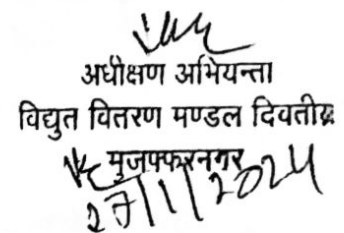 अधीक्षण अभियन्ता
विद्युत वितरण मण्डल दिवतीय
मुजफ्फरनगर
27/11/2024